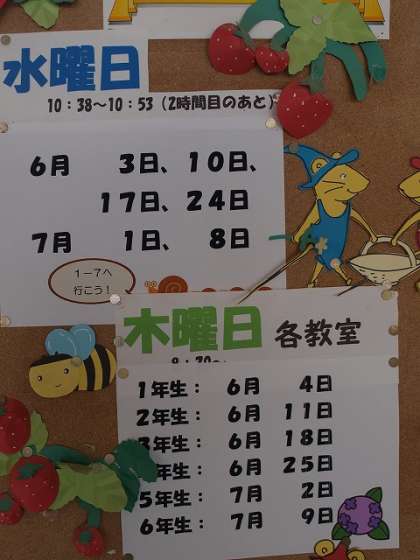 水曜日
10：38～10：53（2時間目のあと）
6月　3日、10日、
17日、24日
7月　1日、　8日
1－7へ
行こう！
木曜日 各教室
1年生：　6月　4日
2年生：　6月　11日
3年生：　6月　18日
年生：　6月　25日
5年生：　7月　2日
6年生：　7月　9日